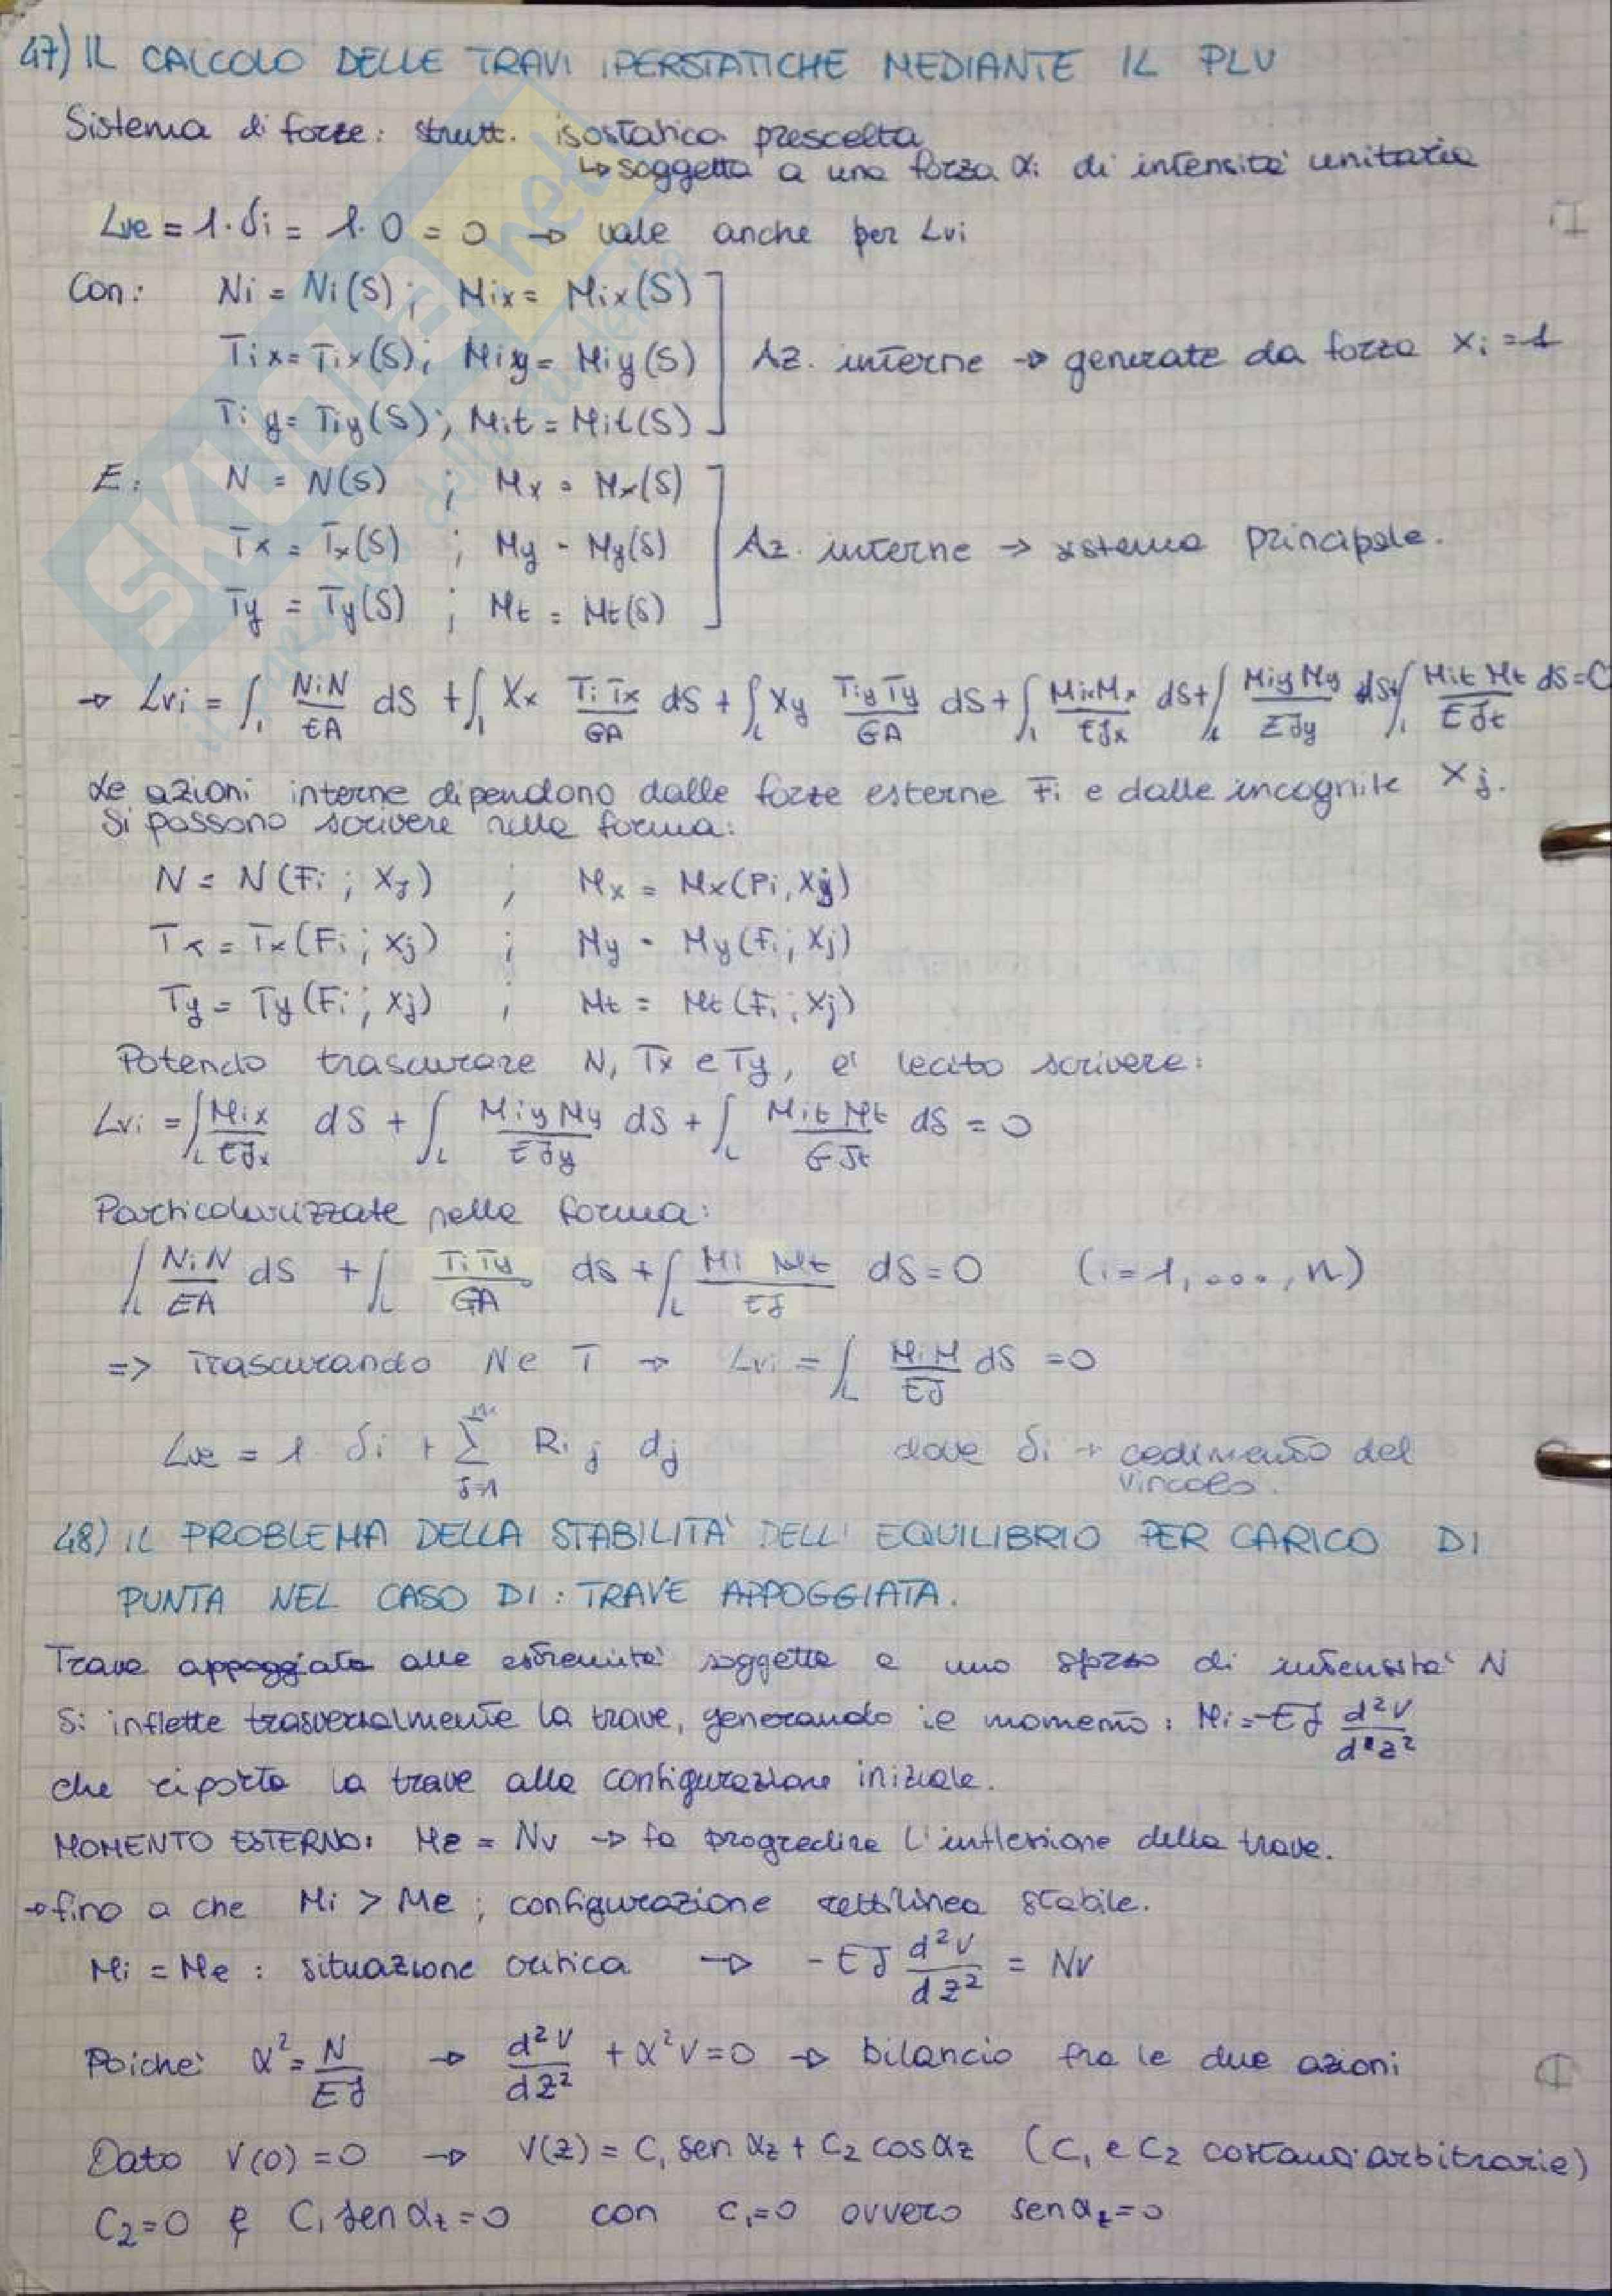 47) IL CALCOLO DELLE TRAVI IPERSTATICHE MEDIANTE IL PLV
Sistema di forze: strutt. isostatica prescelta
↳ soggetta a una forza αi di intensità unitaria
Lve = 1·δi = 1·0 = 0 → vale anche per Lvi
Con: Ni = Ni(S); Mix = Mix(S)
Tix = Tix(S); Miy = Miy(S) Az. interne → generate da forza xi = 1
Tiy = Tiy(S); Mit = Mit(S)
E: N = N(S) ; Mx = Mx(S)
Tx = Tx(S) ; My = My(S) Az. interne → sistema principale.
Ty = Ty(S) ; Mt = Mt(S)
→ Lvi = ∫₁ NiN/EA dS + ∫₁ Xx Ti Tx/GA dS + ∫L Xy Tiy Ty/GA dS + ∫₁ MixMx/EJx dS + ∫L Miy My/EJy dS + ∫₁ Mit Mt/EJt dS = 0
Le azioni interne dipendono dalle forze esterne Fi e dalle incognite Xj.
Si possono scrivere nella forma:
N = N(Fi ; Xj) ; Mx = Mx(Fi, Xj)
Tx = Tx(Fi ; Xj) ; My = My(Fi ; Xj)
Ty = Ty(Fi ; Xj) ; Mt = Mt(Fi ; Xj)
Potendo trascurare N, Tx e Ty, è lecito scrivere:
Lvi = ∫L Mix/EJx dS + ∫L Miy My/EJy dS + ∫L Mit Mt/GJt dS = 0
Particolarizzate nella forma:
∫L NiN/EA dS + ∫L Ti Ty/GA dS + ∫L Mi Mt/EJ dS = 0 (i = 1, ...., n)
=> Trascurando N e T → Lvi = ∫L MiM/EJ dS = 0
Lve = 1 δi + Σ j=1 Rij dj dove δi → cedimento del
vincolo.
48) IL PROBLEMA DELLA STABILITA' DELL' EQUILIBRIO PER CARICO DI
PUNTA NEL CASO DI: TRAVE APPOGGIATA.
Trave appoggiata alle estremità soggetta a uno sforzo di intensità N
Si inflette trasversalmente la trave, generando il momento: Mi = -EJ d²v/d²z²
che riporta la trave alla configurazione iniziale.
MOMENTO ESTERNO: Me = Nv → fa progredire l'inflessione della trave.
→ fino a che Mi > Me ; configurazione rettilinea stabile.
Mi = Me : situazione critica → -EJ d²v/dz² = Nv
Poiché α² = N/EJ → d²v/dz² + α²v = 0 → bilancio fra le due azioni
Dato v(0) = 0 → v(z) = C₁ sen αz + C₂ cos αz (C₁ e C₂ costanti arbitrarie)
C₂ = 0 e C₁ sen αz = 0 con C₁ = 0 ovvero sen αz = 0
SKUOLA.net